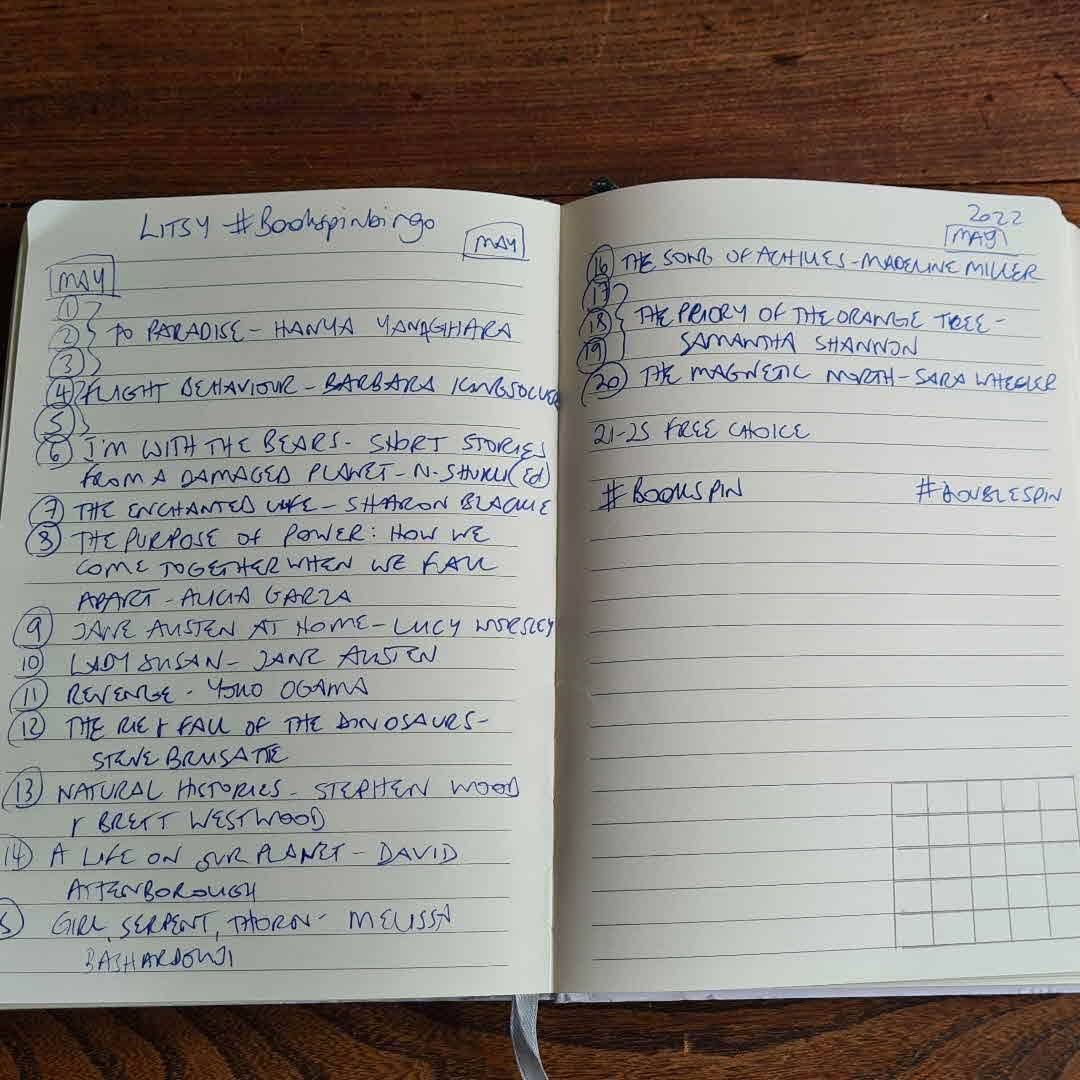 LITSY #Bookspinbingo
MAY
MAY
1
2 TO PARADISE - HANYA YANAGIHARA
3
4 FLIGHT BEHAVIOUR - BARBARA KINGSOLVER
5
6 I'M WITH THE BEARS - SHORT STORIES
FROM A DAMAGED PLANET - N. (Ed)
7 THE ENCHANTED LIFE - SHARON BLACKIE
8 THE PURPOSE OF POWER: HOW WE
COME TOGETHER WHEN WE FALL
APART - ALICIA GARZA
9 JANE AUSTEN AT HOME - LUCY WORSLEY
10 LADY SUSAN - JANE AUSTEN
11 REVENGE - YOKO OGAMA
12 THE RISE & FALL OF THE DINOSAURS -
STEVE BRUSATTE
13 NATURAL HISTORIES - STEPHEN WOOD
& BRETT WESTWOOD
14 A LIFE ON OUR PLANET - DAVID
ATTENBOROUGH
5 GIRL, SERPENT, THORN - MELISSA
BASHARDOUJI
2022
MAY
16 THE SONG OF ACHILLES - MADELINE MILLER
17
18 THE PRIORY OF THE ORANGE TREE -
19 SAMANTHA SHANNON
20 THE MAGNETIC NORTH - SARA WHEELER
21-25 FREE CHOICE
#BOOKSPIN #DOUBLESPIN